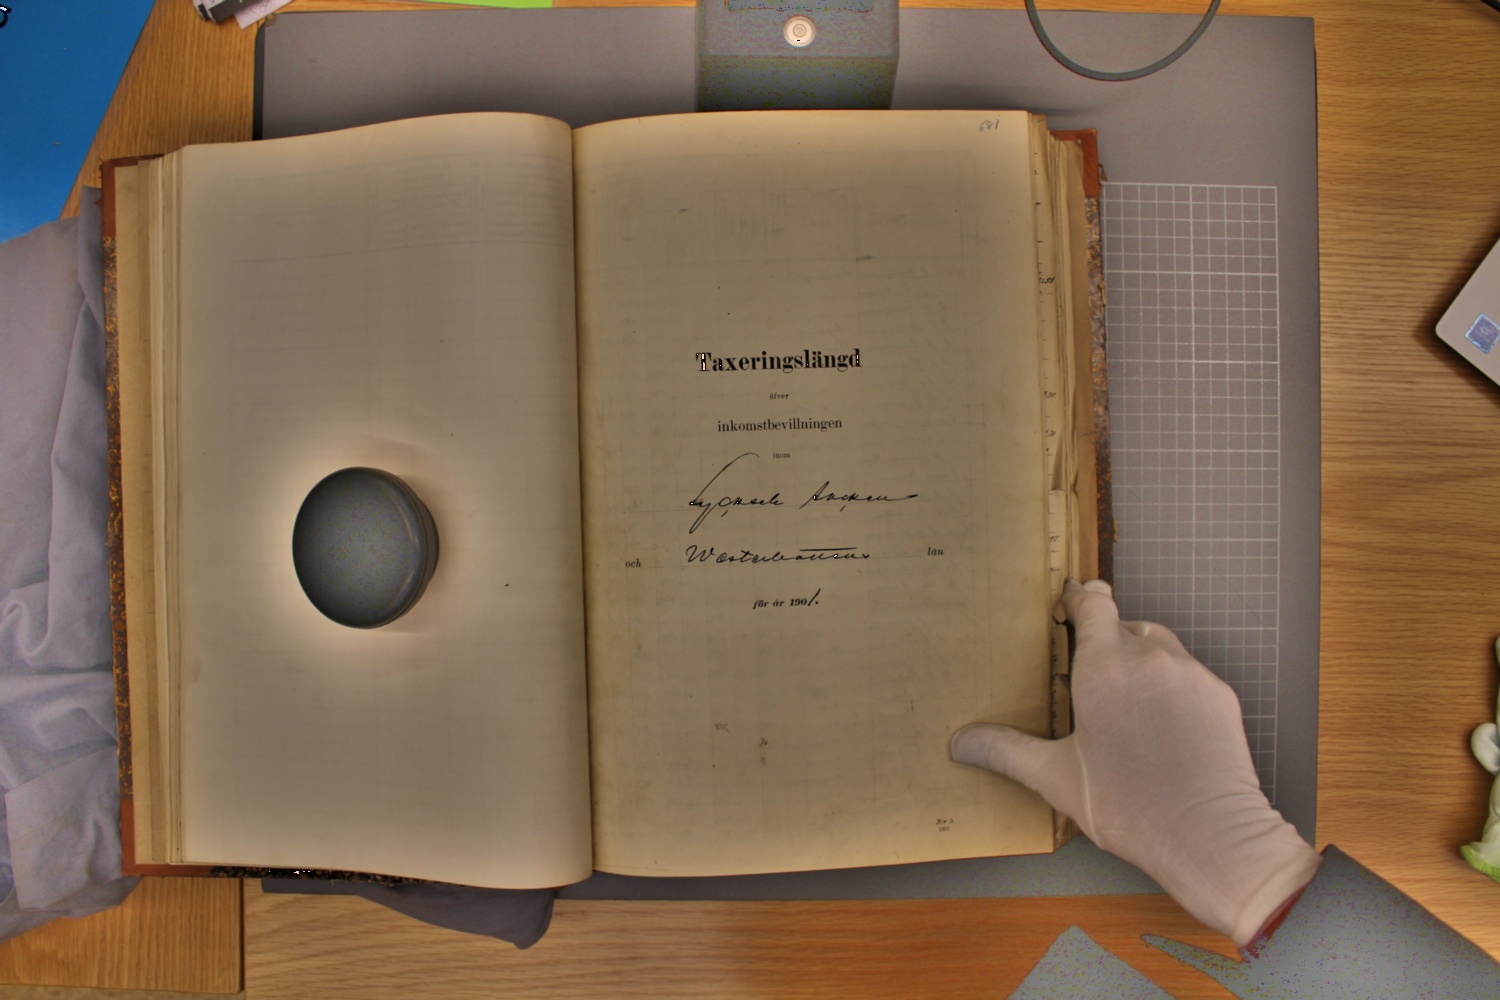 681
Taxeringslängd
öfver
inkomstbevillningen
inom
Lycksele Socken
och Westerbottens län
för år 1901.